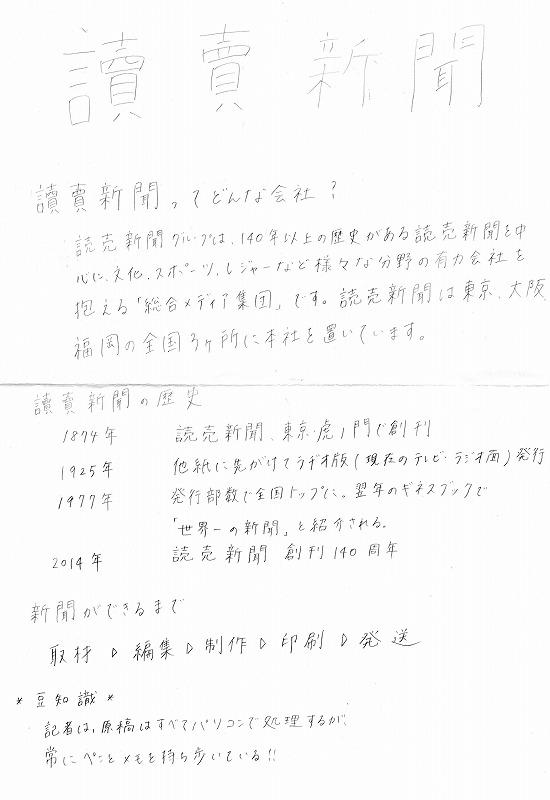 讀賣新聞
讀賣新聞ってどんな会社?
読売新聞グループは、140年以上の歴史がある読売新聞を中
心に、文化、スポーツ、レジャーなど様々な分野の有力会社を
抱える「総合メディア集団」です。読売新聞は東京、大阪、
福岡の全国3ヶ所に本社を置いています。
讀賣新聞の歴史
1874年 読売新聞、東京・虎ノ門で創刊
1925年 他紙に先がけてラヂオ版(現在のテレビ・ラジオ面)発行
1977年 発行部数で全国トップに。翌年のギネスブックで
「世界一の新聞」と紹介される。
2014年 読売新聞 創刊140周年
新聞ができるまで
取材▷編集▷制作▷印刷▷発送
*豆知識*
記者は、原稿はすべてパソコンで処理するが、
常にペンとメモを持ち歩いている!!